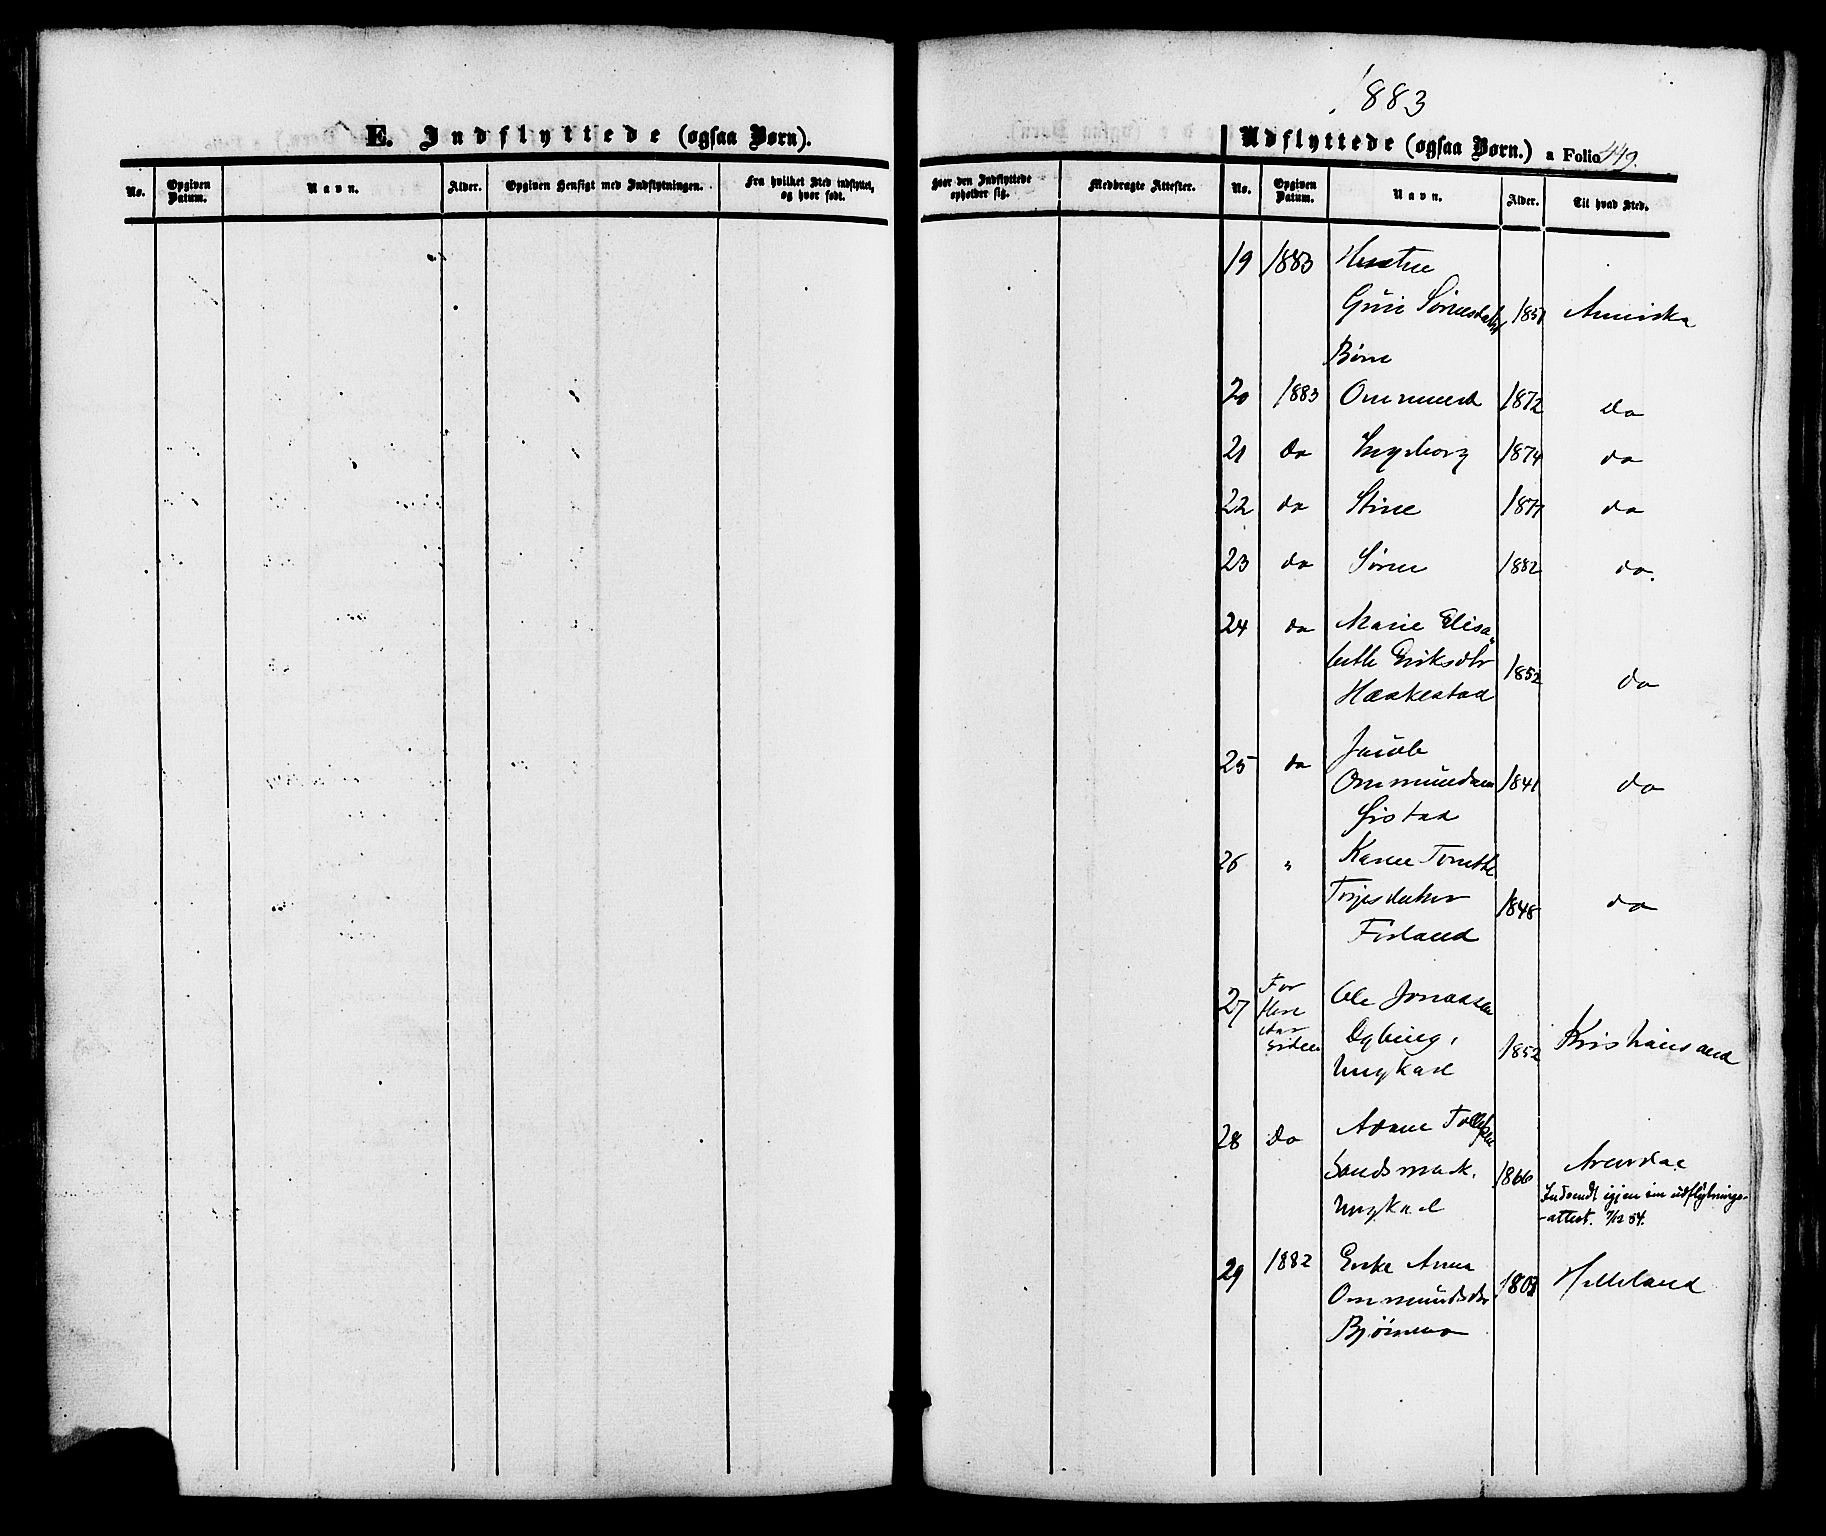 1883
E. Indflyttede (ogsaa Børn).
Udflyttede (ogsaa Børn.) a Folio 449.
No. Opgiven Datum. Navn. Alder. Opgiven Hensigt med Indflytningen. Fra hvilket Sted indflyttet, og hvor født.
Hvor den Indflyttede opholder sig. Medbragte Attester. No. Opgiven Datum. Navn. Alder. Til hvad Sted.
19 1883 Hustru
Guri Sørensdatter 1851 Amerika
Børn
20 1883 Ommund 1872 do
21 do Ingeborg 1874 do
22 do Stine 1877 do
23 do Søren 1882 do.
24 do Marie Elisa-
beth Eriksdtr 1852 do
Haakestad
25 do Jacob
Ommundsen 1841 do
Sirstad
26 " Karen Tomette
Terjesdatter 1848 do
Forland
27 For flere Aar siden Ole Jonassen
Dybing, 1852 Kristiansand
Ungkarl
28 do Adam Tollefsen
Sandsmark, 1866 Arendal
Ungkarl Indsendt igjen sin udflytnings-
-attest. 7/12 84.
29 1882 Enke Anna
Ommundsdtr 1803 Helleland
Bjørnmo